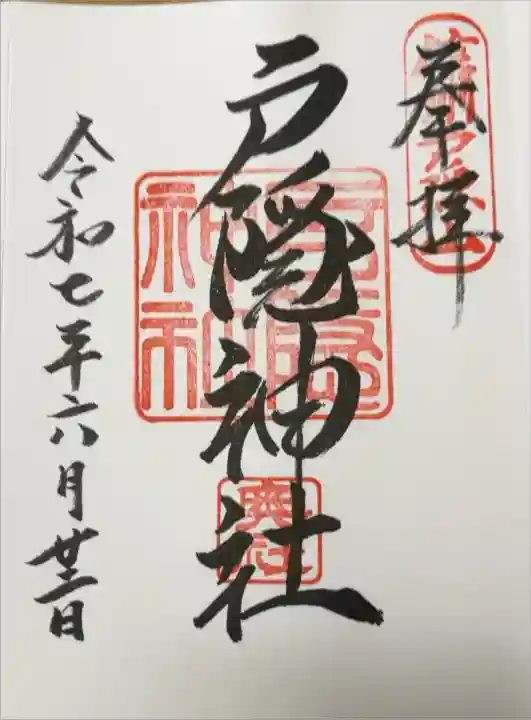 奉拝
戸隠神社
奥社
令和七年六月廿二日